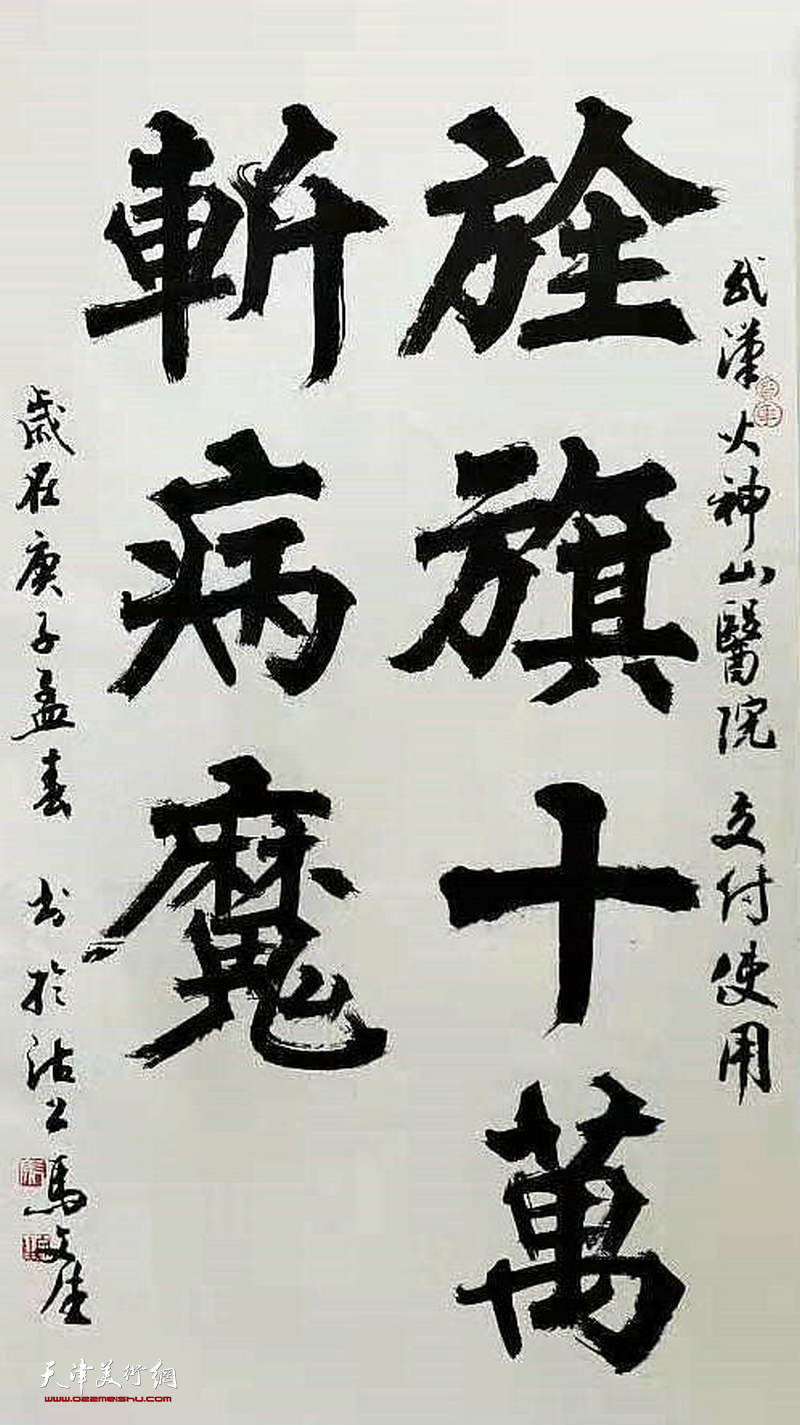 武漢火神山醫院 交付使用
旌旗十萬
斬病魔
歲在庚子孟春 书於沽上馬文
天津美術網
www.022meishu.com